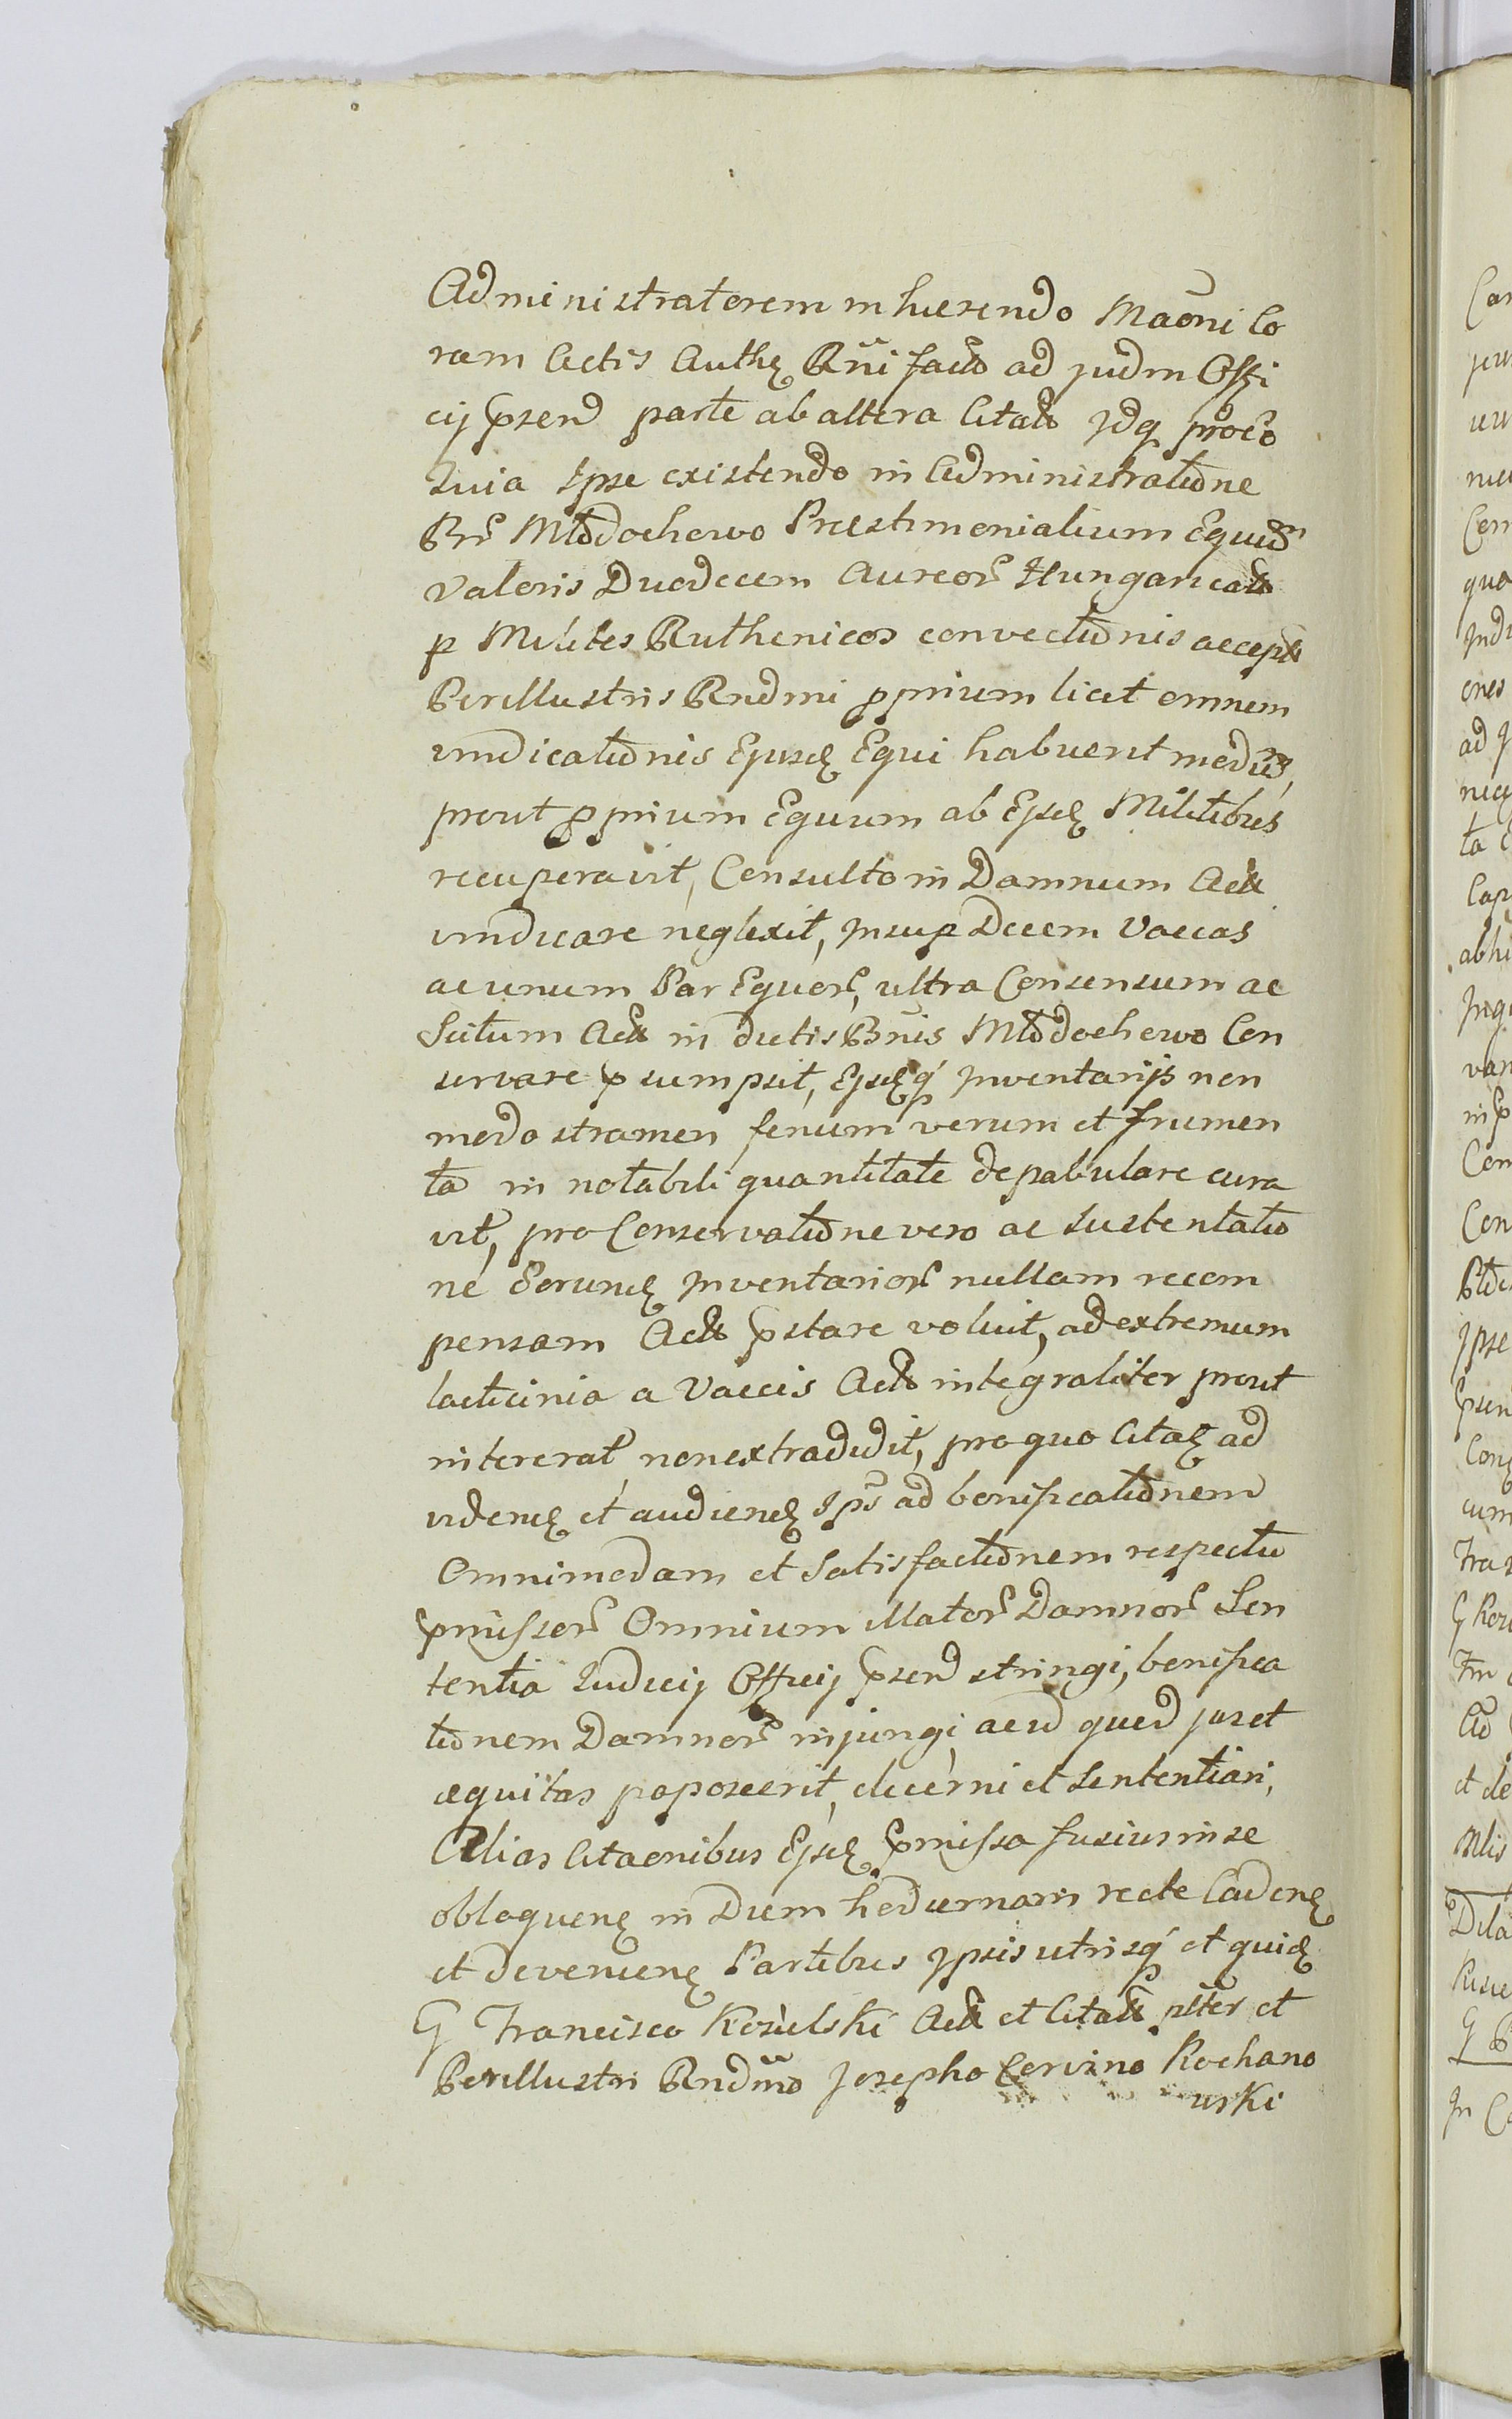 Administratorem inhærendo Maōni Co
ram Actis Authē Rñi facto ad judm Offi
cij pꝛsend parte ab altera Citato Idq̃ proćo
Quia Ipse existendo in Administratione
Bñr Młodochowo Præstimonialium Equum
Valoris Duodecem Aureorꝰ Hungarical
p Milites Ruthenicos convectionis accepto
Perillustris Rndmi pprium licet omnem
vindicationis Ejusdꝫ Equi habuerit modum,
prout pprium Equum ab Ejsdꝫ Militibus
recuperavit, Consulto in Damnum Actꝰ
vindicare neglexit, Insup Decem Vaccas
ac unum Par Equorꝰ, ultra Consensum ac
Scitum Actꝰ in dictis Bñis Młodochowo Con
servare psumpsit, Ejsdꝫq́ Inventarijs non
modo stramen, fenum verum et frumen
ta in notabili quantitate depabulare cura
vit, pro Conservatione vero ac Sustentatio
ne Eorundꝫ Inventariorꝰ nullam recom
pensam Acto pstare voluit, ad extremum
lacticinia a Vaccis Acto integraliter prout
intererat, non extradidit, pro quo Citatꝫ ad
videndꝫ et audiendꝫ Ips̃ ad bonificationem
Omnimodam et Satisfactionem respectu
pmissorꝰ Omnium illatorꝰ Damnorꝰ Sen
tentia Judicij Officij pꝛsend stringi, bonifica
tionem Damnorꝰ injungi, ac id quod jus et
æquitas poposcerit, decerni et Sententiari,
Alias Citaonibus Ejsdꝫ pmissa fusius in se
obloquenꝫ in Diem hodiernam recte Cadenꝫ
et devenienꝫ Partibus Ipsis utrisq́ et quidꝫ
G Francisco Kozulski Actꝰ et Citatꝰ plter et
Perillustri Rndm̃o Josepho Corvino Kochano
wski